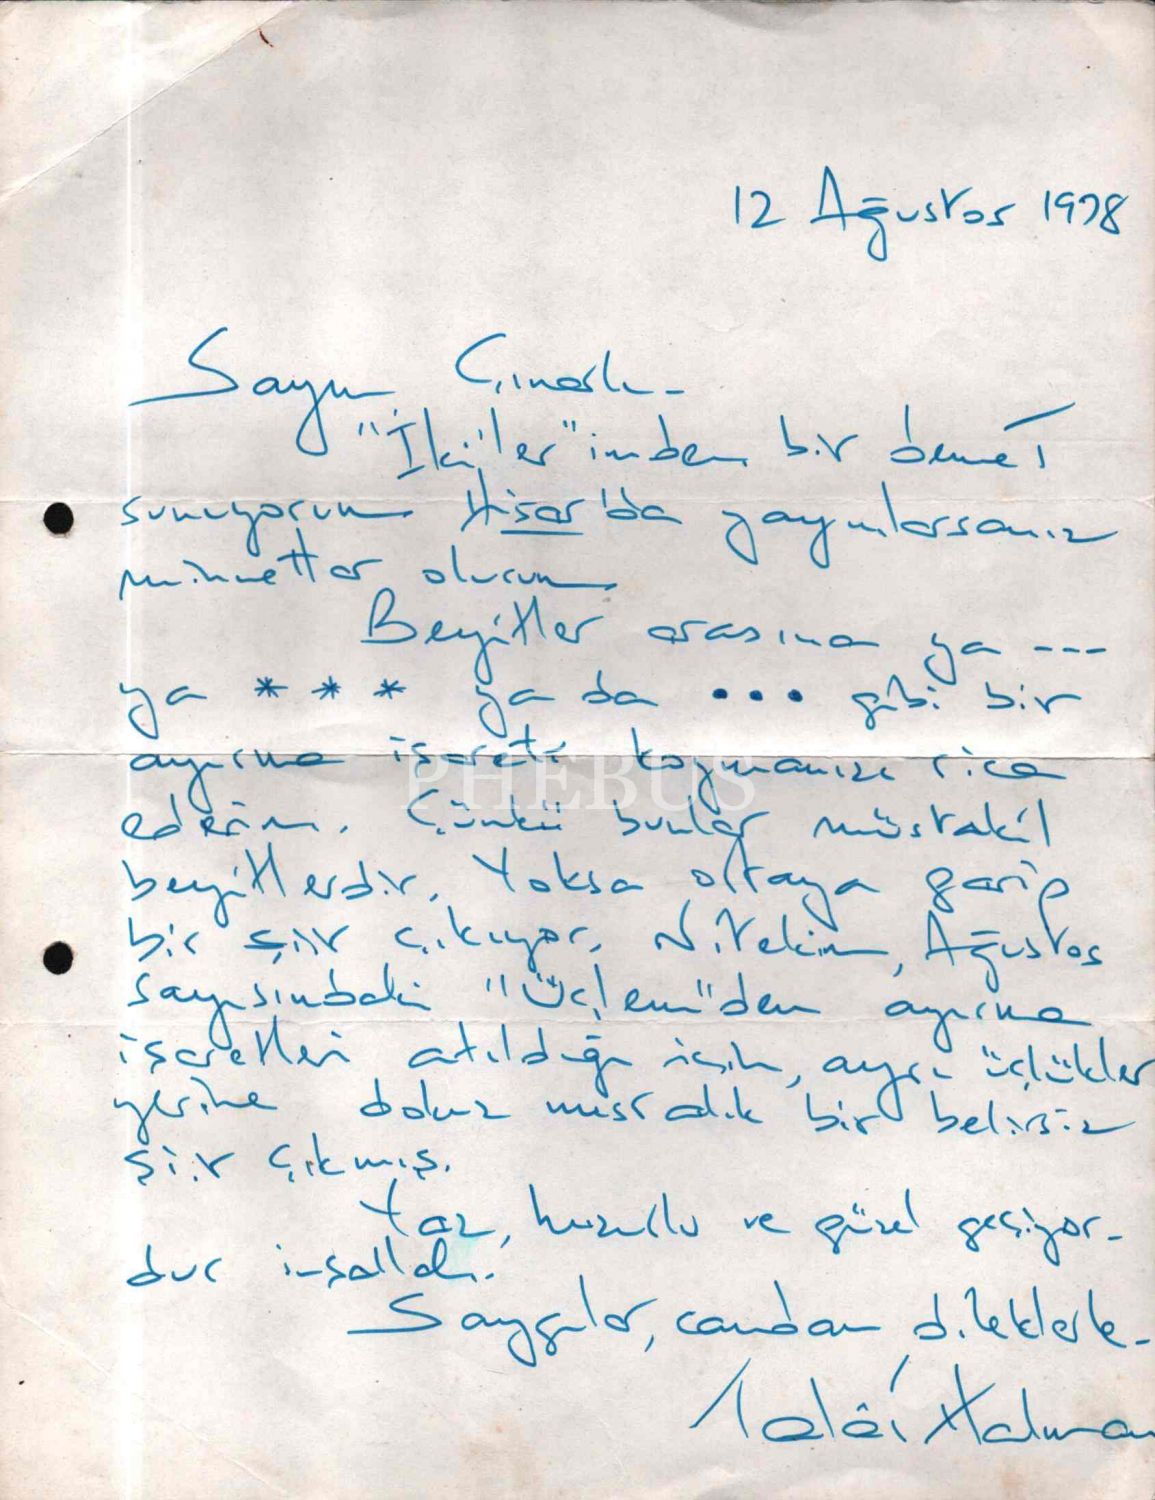 12 Ağustos 1978
Sayın Çınarlı -
"İkiler"imden bir demet
sunuyorum. Hisar'da yayınlarsanız
minnettar olurum.
Beyitler arasına ya ---
ya * * * ya da • • • gibi bir
ayırma işareti koymanızı rica
ederim. Çünkü bunlar müstakil
beyitlerdir. Yoksa ortaya garip
bir şiir çıkıyor. Nitekim, Ağustos
sayısındaki "Üçlem"den ayırma
işaretleri atıldığı için, ayrı üçlükler
yerine dokuz mısralık bir belirsiz
şiir çıkmış.
Yaz, huzurlu ve güzel geçiyor-
dur inşallah.
Saygılar, candan dileklerle -
Talât Halman
PHEBUS